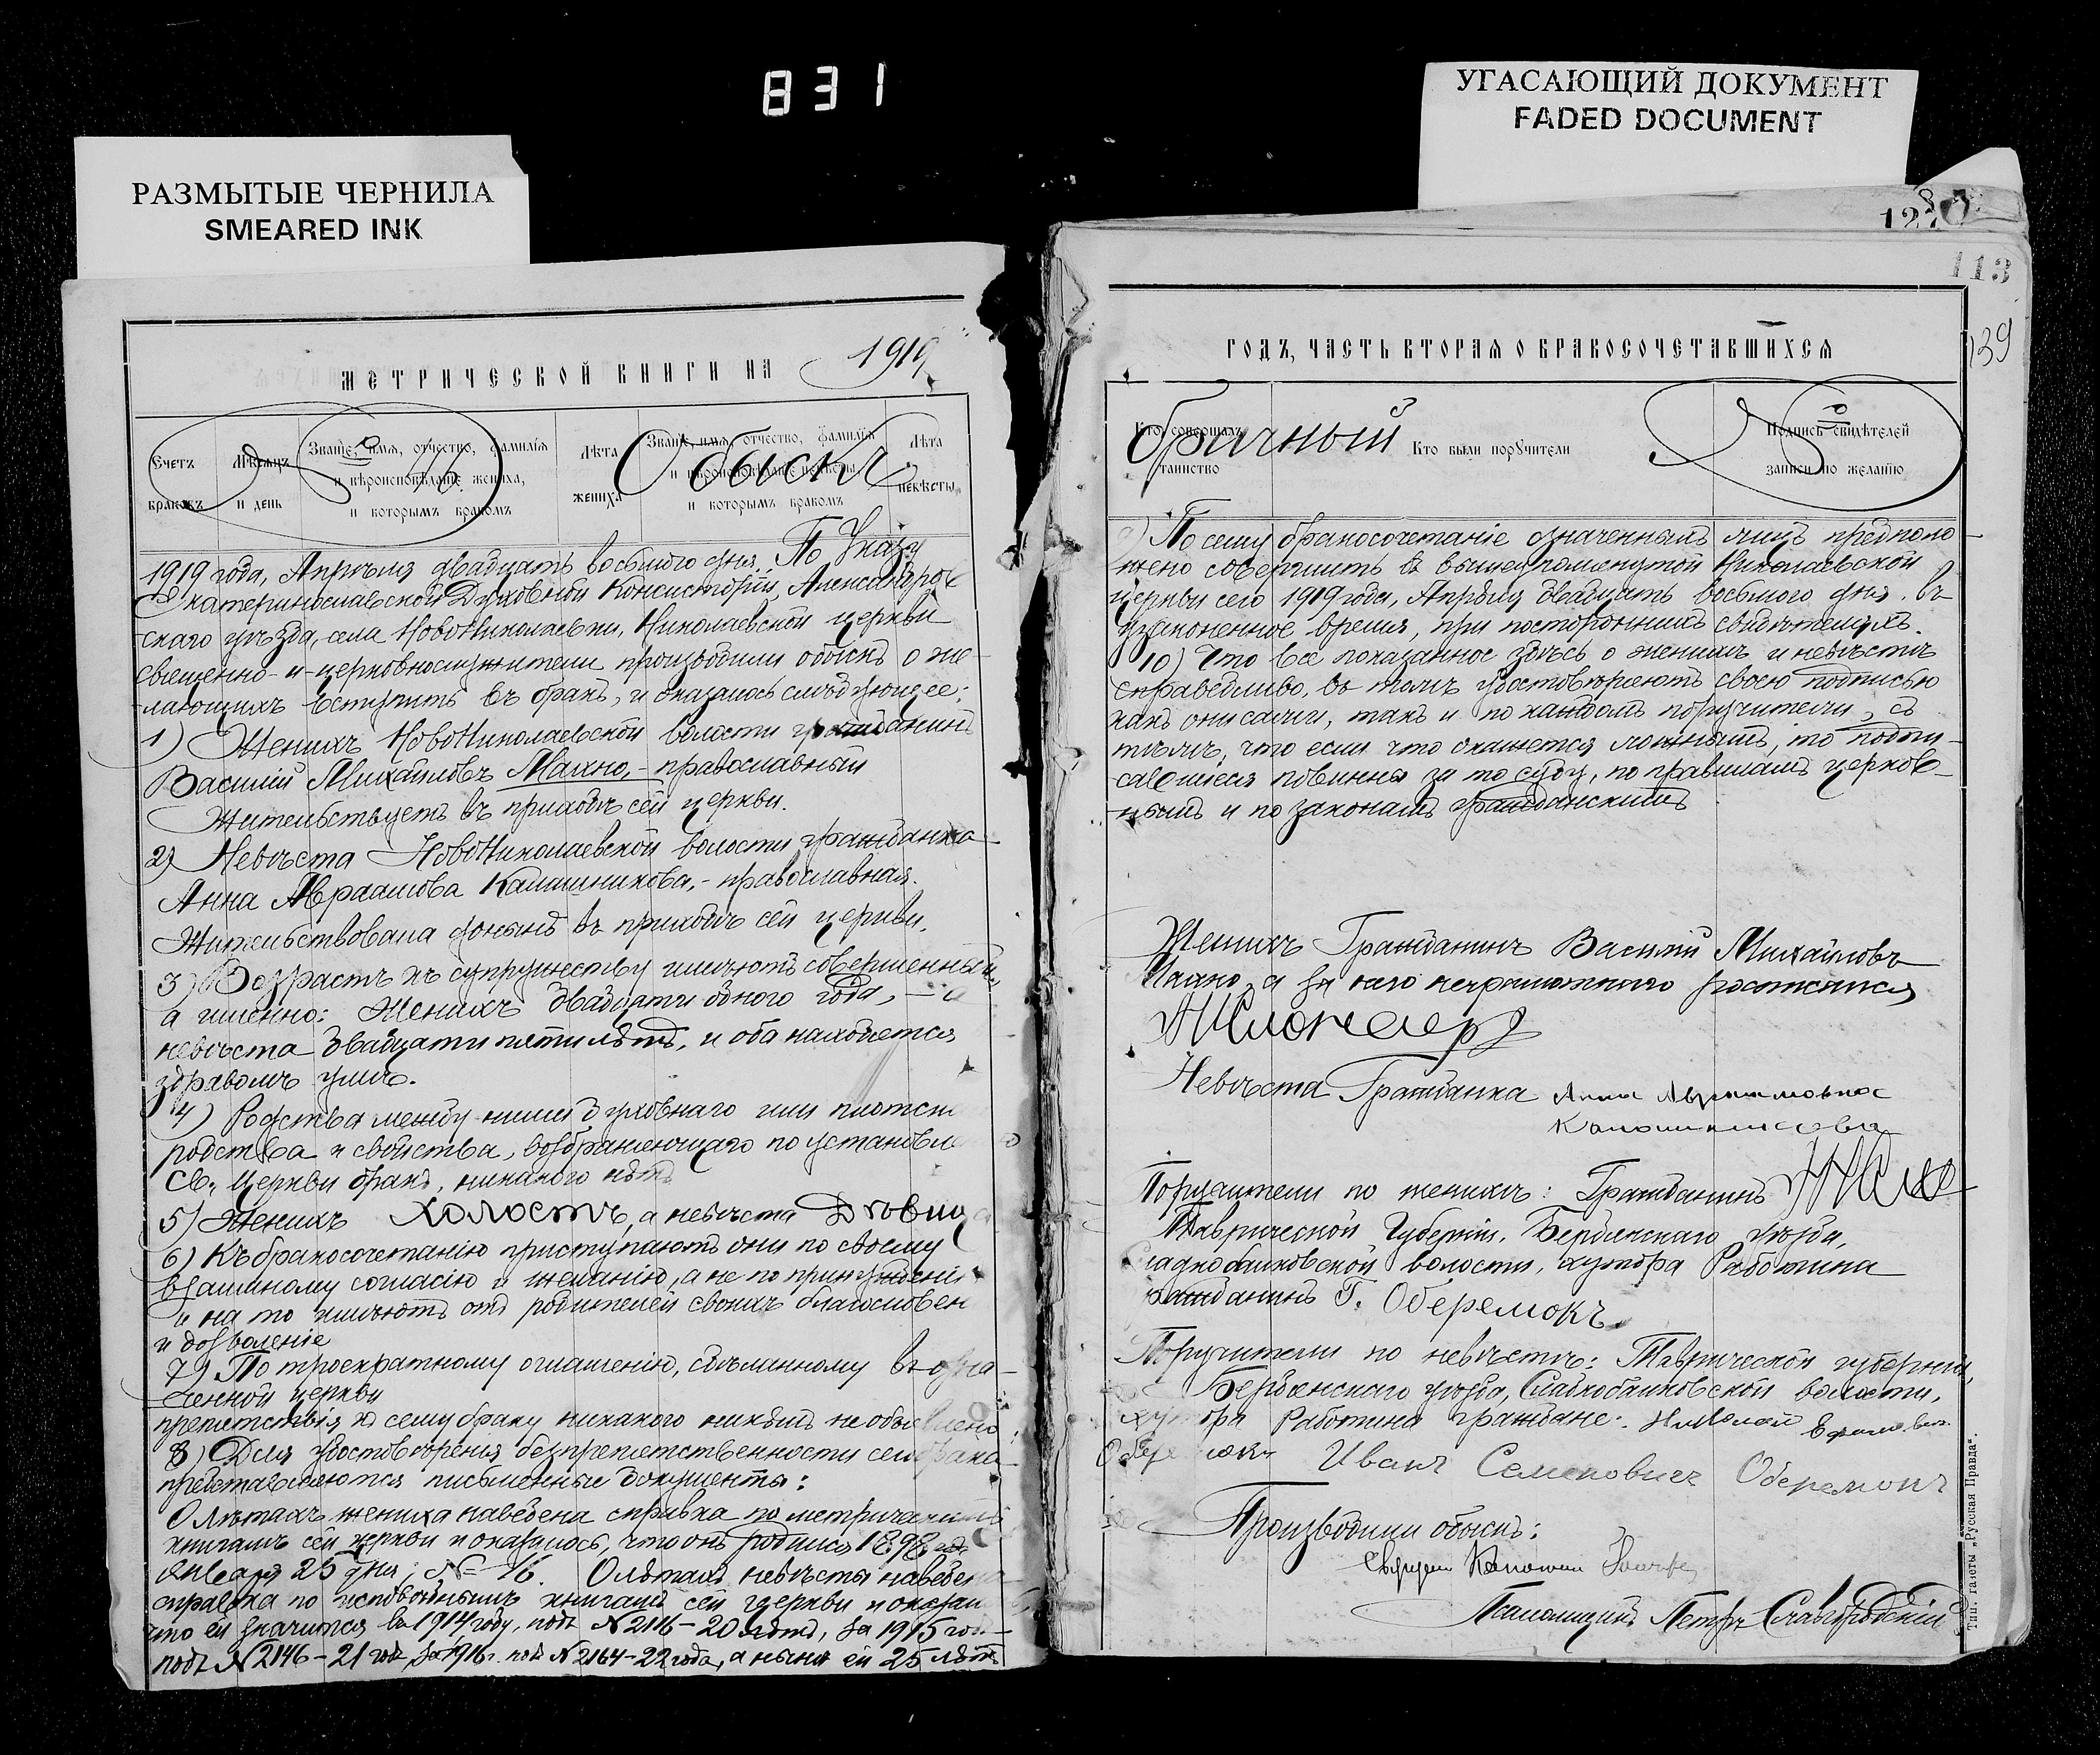 831
РАЗМЫТЫЕ ЧЕРНИЛА
SMEARED INK
УГАСАЮЩИЙ ДОКУМЕНТ
FADED DOCUMENT
МЕТРИЧЕСКОЙ КНИГИ НА 1919
Счетъ браковъ
Мѣсяцъ и день
Званіе, имя, отчество, фамилія и вѣроисповѣданіе жениха, и которымъ бракомъ
Лѣта жениха
Званіе, имя, отчество, фамилія и вѣроисповѣданіе невѣсты и которымъ бракомъ
Лѣта невѣсты
Обыскъ
1919 года, Апрѣля двадцать восьмого дня. По Указу
Екатеринославской Духовной Консисторіи, Александров
скаго уѣзда, села НовоНиколаевки, Николаевской церкви
священно-и-церковнослужители производили обыскъ о же-
лающихъ вступить въ бракъ, и оказалось слѣдующее:
1) Женихъ НовоНиколаевской волости гражданинъ
Василій Михайловъ Махно,- православный
Жительствуетъ въ приходѣ сей церкви.
2) Невѣста НовоНиколаевской волости гражданка
Анна Авраамова Калашникова,- православная.
Жительствовала донынѣ въ приходѣ сей церкви.
3) Возрастъ къ супружеству имѣютъ совершенный,
а именно: Женихъ двадцати одного года, - а
невѣста двадцати пяти лѣтъ, и оба находятся
здравомъ умѣ.
4) Родства между ними духовнаго или плотск
родства и свойства, возбраняющаго по установле
Св. Церкви бракъ, никакого нѣтъ
5) Женихъ холостъ, а невѣста Дѣвица
6) Къ бракосочетанію приступаютъ они по своему
взаимному согласію и желанію, а не по принужденію
и на то имѣютъ отъ родителей своихъ благословен
и дозволеніе
7) По троекратному оглашенію, сдѣланному въ озна-
ченной церкви
препятствія къ сему браку никакого никѣмъ не объявлено
8) Для удостовѣренія безпрепятственности сего брака
представляются письменные документы:
О лѣтахъ жениха наведена справка по метрическимъ
книгамъ сей церкви и оказалось, что онъ родился 1898 год
Января 25 дня; № 16. О лѣтахъ невѣсты наведена
справка по исповѣднымъ книгамъ сей церкви и оказал
что ей значится въ 1914 году, подъ № 2116 - 20 лѣтъ, за 1915 год-
подъ № 2146 - 21 годъ, за 1916г. подъ № 2164 - 22 года, а нынѣ ей 25 лѣтъ
113
139
ГОДЪ, ЧАСТЬ ВТОРАЯ О БРАКОСОЧЕТАВШИХСЯ
Кто совершалъ таинство
Кто были поручители
Подпись свидѣтелей записи по желанію
брачный
9) По сему бракосочетаніе означенныхъ лицъ предполо-
жено совершить въ вышеупомянутой Николаевской
церкви сего 1919 года, Апрѣля двадцать восьмого дня. въ
узаконенное время, при постороннихъ свидѣтеляхъ.
10) Что все показанное здѣсь о женихѣ и невѣстѣ
справедливо, въ томъ удостовѣряютъ своею подписью
какъ они сами, такъ и по каждомъ поручители, съ
тѣмъ, что если что окажется ложнымъ, то подпи-
савшіеся повинны за то суду, по правиламъ церков-
нымъ и по законамъ гражданскимъ
Женихъ Гражданинъ Василій Михайловъ
Махно, а за него неграмотнаго росписался
Невѣста Гражданка Анна Авраамовна
Калашникова
Поручители по женихѣ: Гражданинъ
Таврической Губерніи. Бердянскаго уѣзда,
Сладкобалковской волости, хутора Работина
гражданинъ Г. Оберемокъ
Поручители по невѣстѣ: Таврической губерніи,
Бердянскаго уѣзда, Сладкобалковской волости,
хутора Работина граждане: Николай
Оберемокъ Иванъ Семеновичъ Оберемокъ
Производили обыскъ:
Псаломщикъ Петръ Славгородскій
Тип. газеты „Русская Правда“.